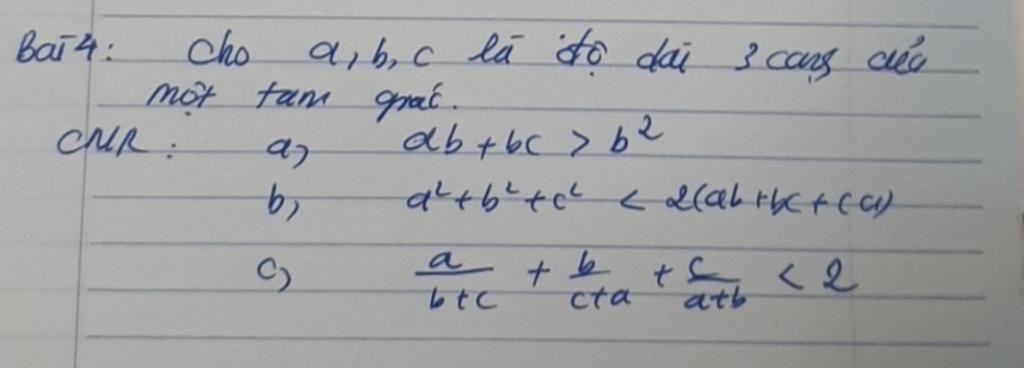 Bài 4: Cho a, b, c là độ dài 3 cạng của
một tam giác.
CMR: a, ab + bc > b²
b, a² + b² + c² < 2(ab + bc + ca)
c, a/(b+c) + b/(c+a) + c/(a+b) < 2